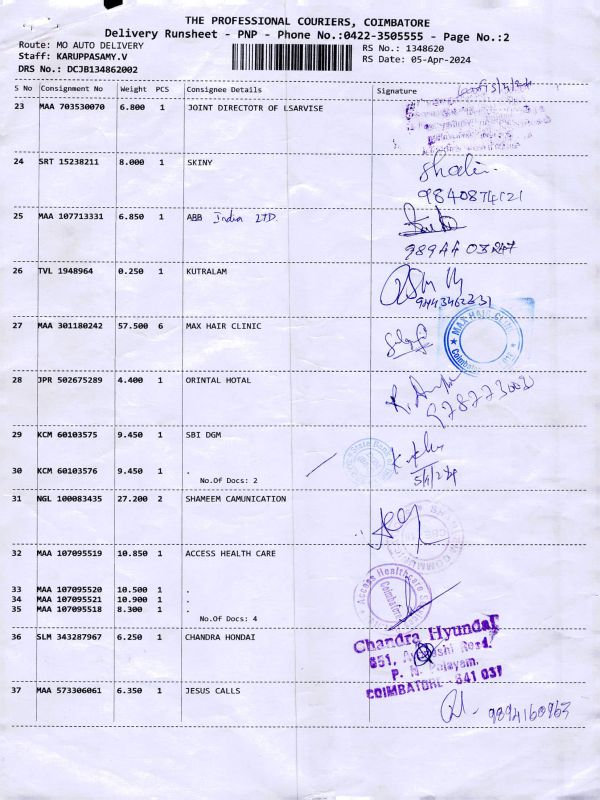 THE PROFESSIONAL COURIERS, COIMBATORE
Delivery Runsheet - PNP - Phone No.:0422-3505555 - Page No.:2
Route: MO AUTO DELIVERY
RS No.: 1348620
Staff: KARUPPASAMY.V
RS Date: 05-Apr-2024
DRS No.: DCJB134862002
S No Consignment No Weight PCS Consignee Details Signature
23 MAA 703530070 6.800 1 JOINT DIRECTOTR OF LSARVISE
24 SRT 15238211 8.000 1 SKINY
9840874121
25 MAA 107713331 6.850 1 ABB India LTD.
26 TVL 1948964 0.250 1 KUTRALAM
27 MAA 301180242 57.500 6 MAX HAIR CLINIC
MAX HAIR CLINIC
28 JPR 502675289 4.400 1 ORINTAL HOTAL
29 KCM 60103575 9.450 1 SBI DGM
State Bank
30 KCM 60103576 9.450 1 .
No.Of Docs: 2
5/4/24
31 NGL 100083435 27.200 2 SHAMEEM CAMUNICATION
32 MAA 107095519 10.850 1 ACCESS HEALTH CARE
Access Healthcare
Coimbatore
33 MAA 107095520 10.500 1 .
34 MAA 107095521 10.900 1 .
35 MAA 107095518 8.300 1 .
No.Of Docs: 4
36 SLM 343287967 6.250 1 CHANDRA HONDAI
Chandra Hyundai
851, Road.
P. N. Palayam.
COIMBATORE - 641 037
37 MAA 573306061 6.350 1 JESUS CALLS
9894160963